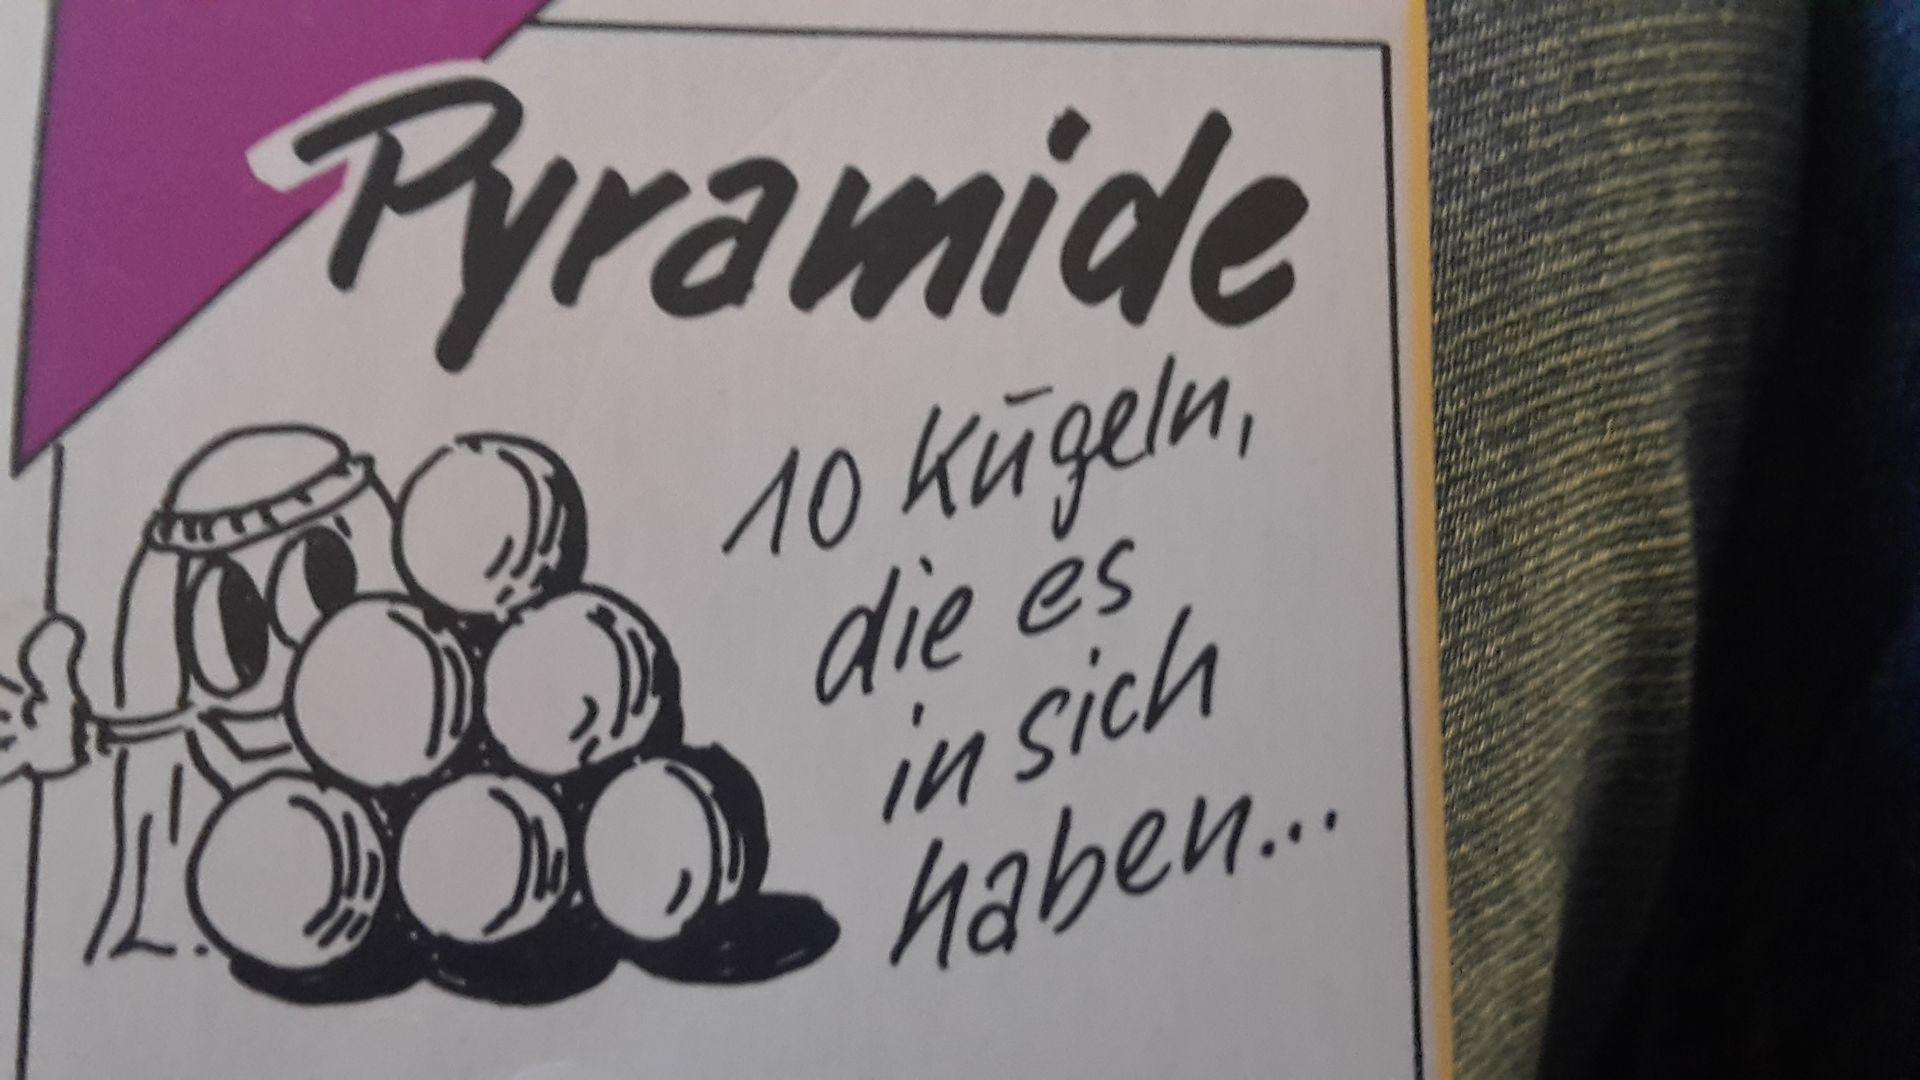 Pyramide
10 Kugeln,
die es
in sich
haben...